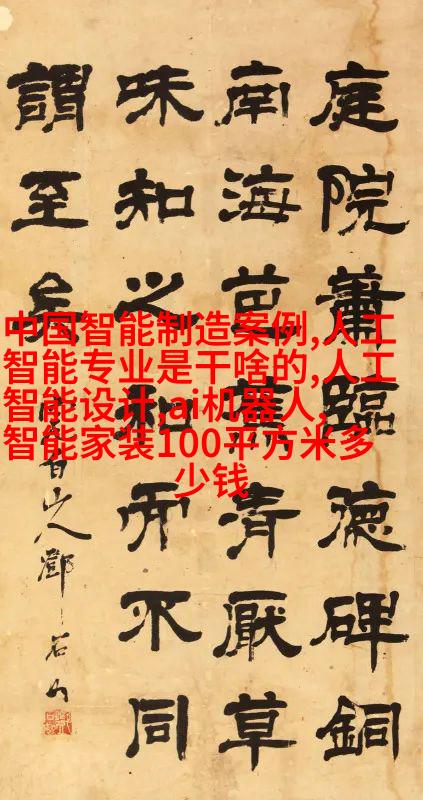 庭院蕭臨德碑銅
南海芭蕉清厭草
味知之和而不同
謂至矣
山人鄧石如
中国智能制造案例,人工
智能专业是干啥的,人工
智能设计,ai机器人,
智能家装100平方米多
少钱